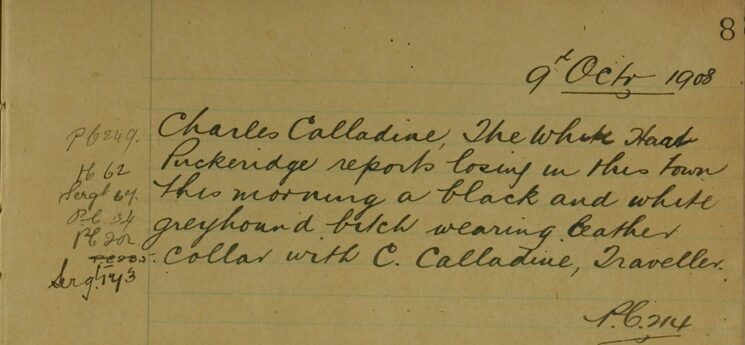 8
9th Octr 1908
P.C 249.
Charles Calladine, The White Hart
Puckeridge reports losing in this town
PC 62
Sergt 67.
this morning a black and white
P.C. 34
greyhound bitch wearing leather
PC 202
collar with C. Calladine, Traveller.
Sergt 143
P.C. 214